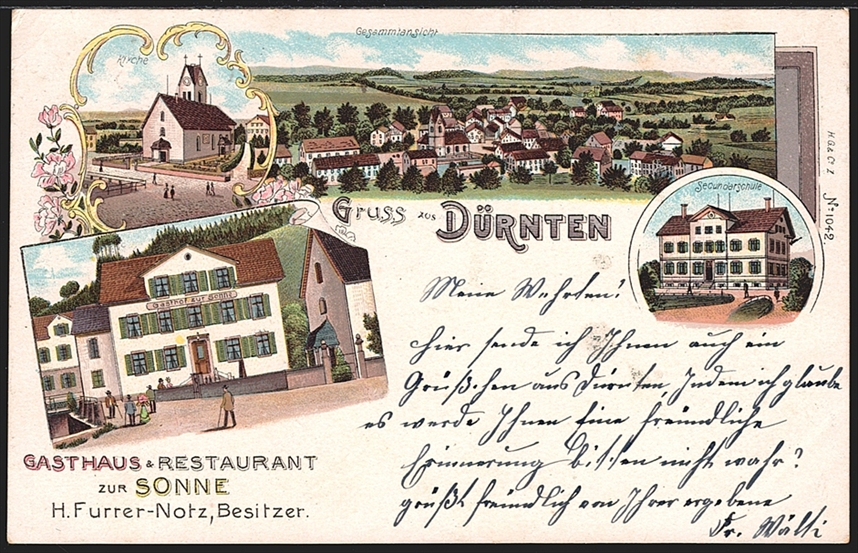 Kirche
Gesammtansicht
H.G.& Cº Z
Nº 11042.
Secundarschule
Gruss aus DÜRNTEN
Gasthof zur Sonne
Meine Wehrten!
hier sende ich Ihnen auch ein
Grüßchen aus Dürnten, Indem ich glaube
es werde Ihnen Eine freundliche
Erinnerung bitten nicht wahr?
grüßt freundlich von Ihrer ergebene
Fr. Wälti
GASTHAUS & RESTAURANT
ZUR SONNE
H. Furrer-Notz, Besitzer.